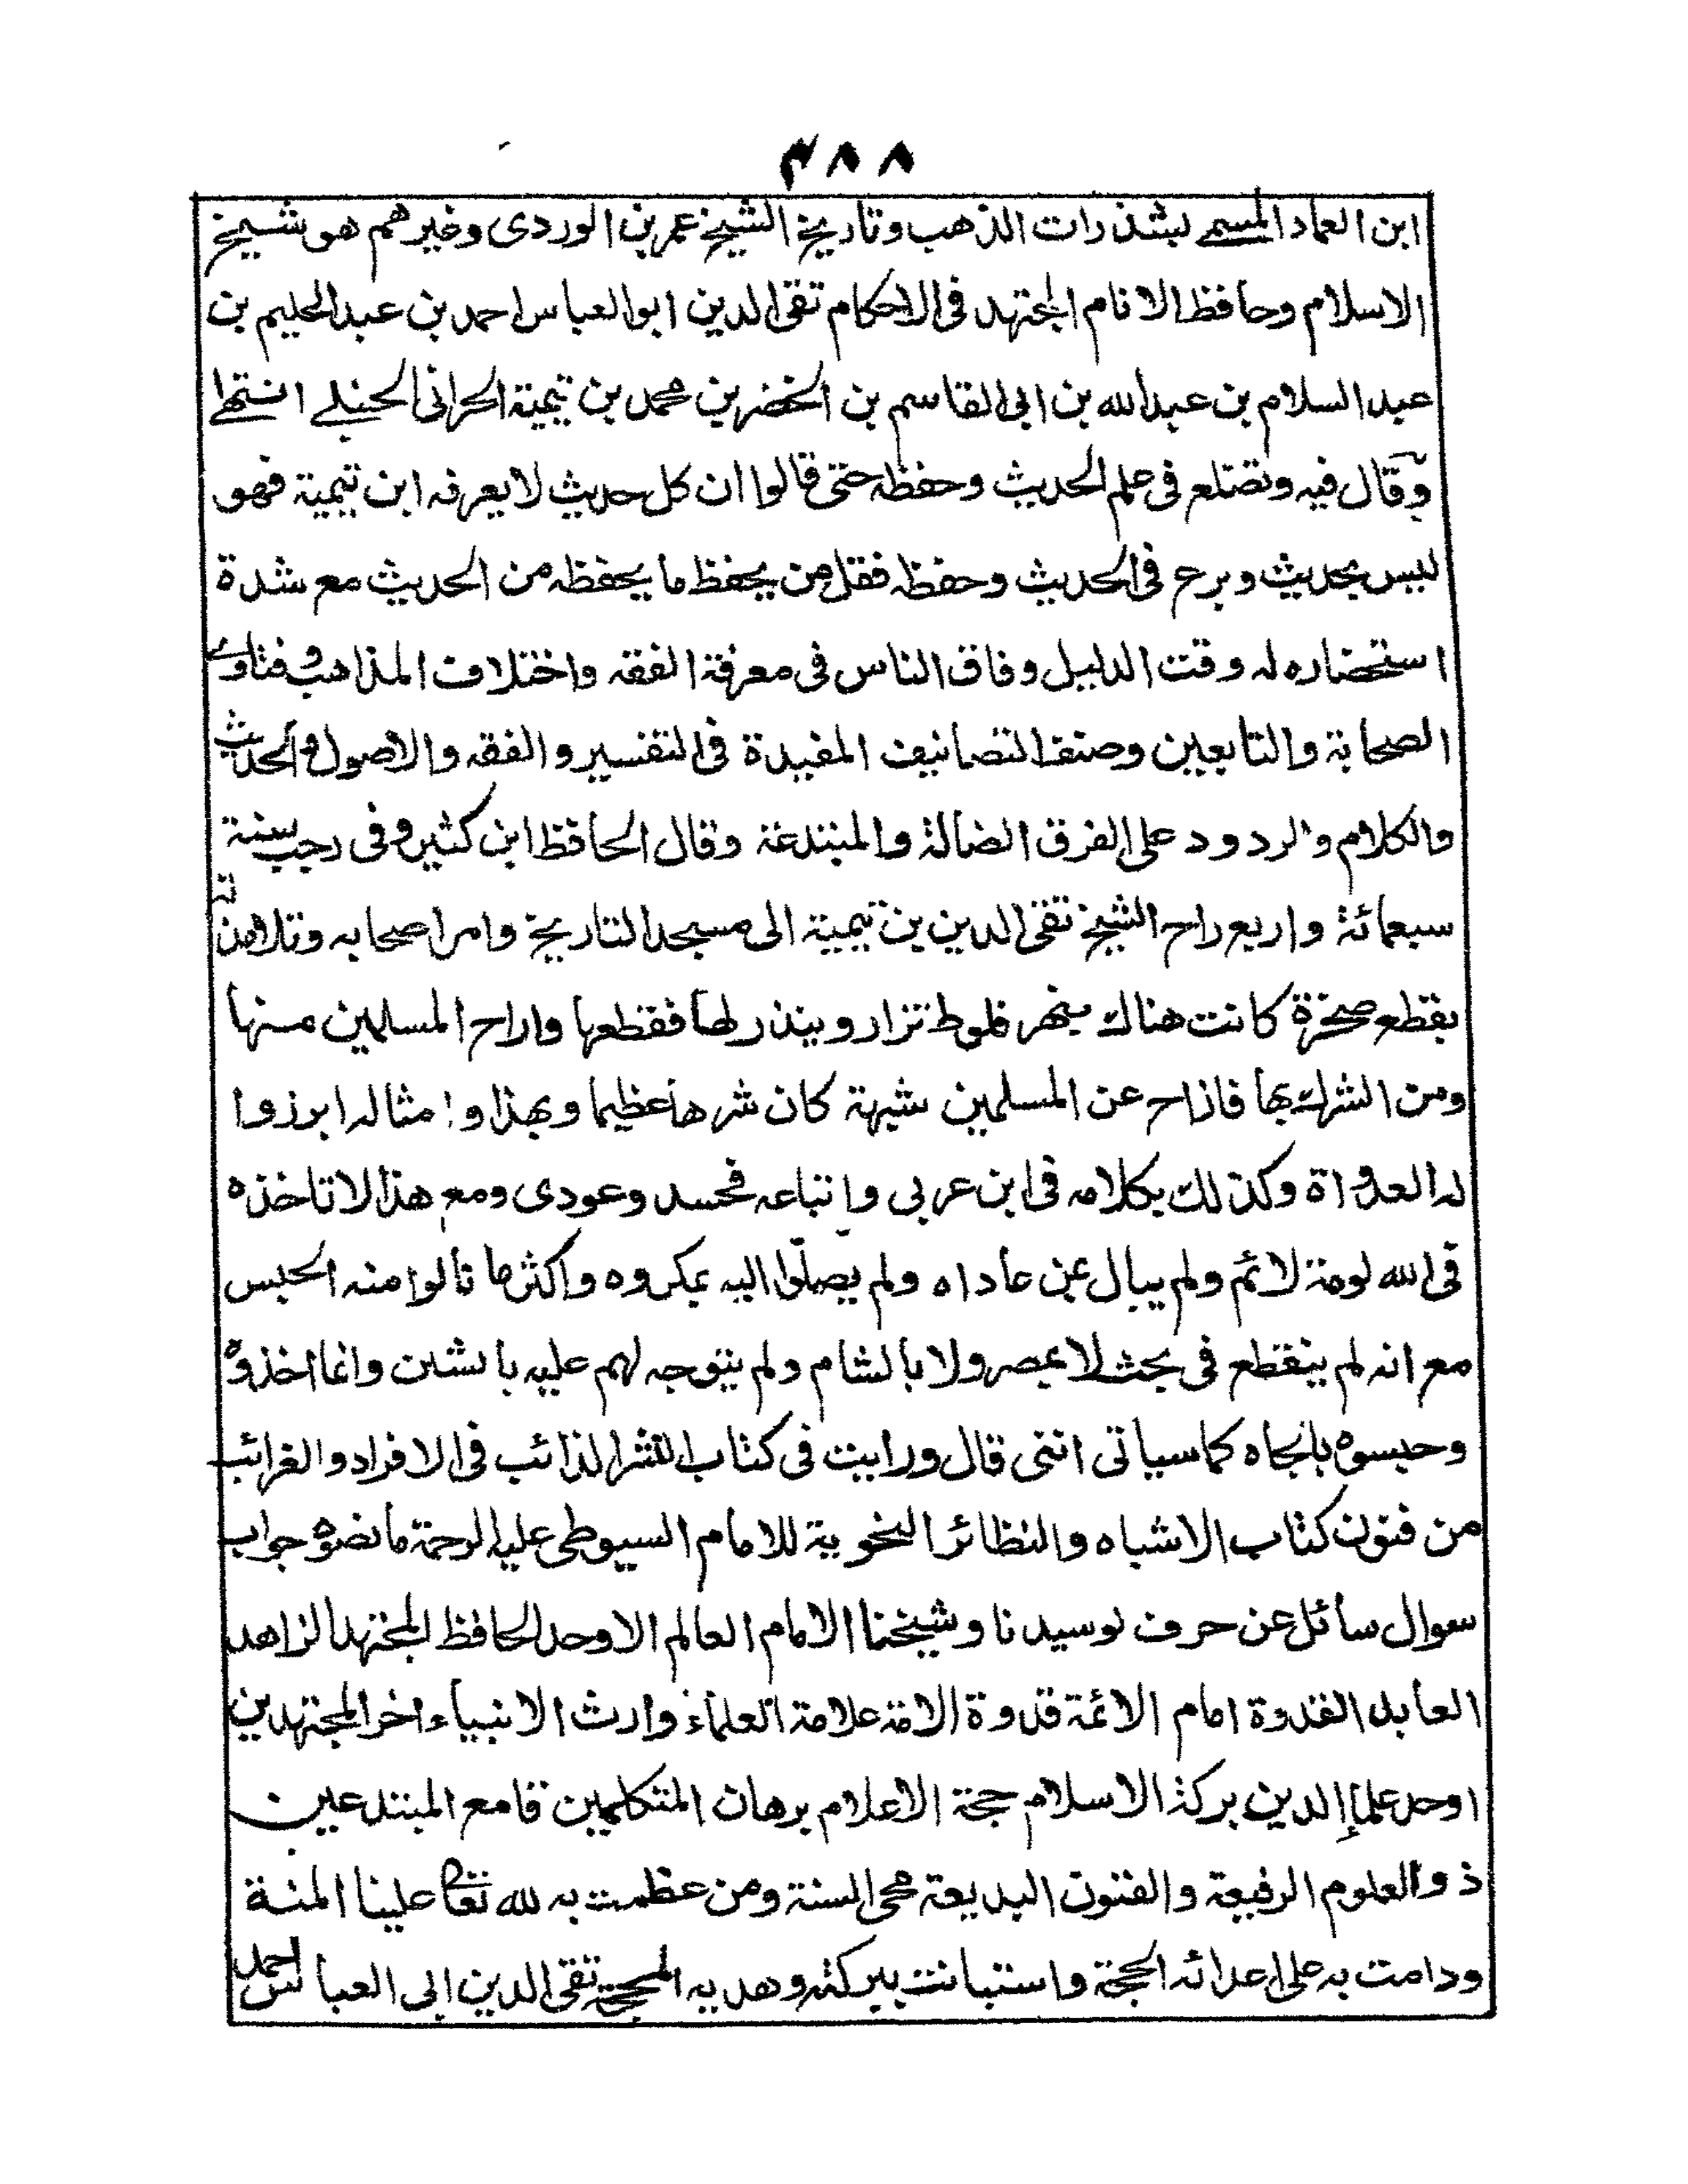 ٣٨٨
ابن العماد المسمى بشذرات الذهب وتاريخ الشيخ عمر بن الوردى وغيرهم هو شيخ
الاسلام وحافظ الانام المجتهد فى الاحكام تقى الدين ابو العباس احمد بن عبد الحليم بن
عبد السلام بن عبد الله بن ابى القاسم بن الخضر بن محمد بن تيمية الحرانى الحنبلے انتهے
وقال فيه وتضلع فى علم الحديث وحفظه حتى قالوا ان كل حديث لا يعرفه ابن تيمية فهو
ليس بحديث وبرع فى الحديث وحفظه فقل من يحفظ ما يحفظه من الحديث مع شدة
استحضاره له وقت الدليل وفاق الناس فى معرفة الفقه واختلاف المذاهب وفتاوے
الصحابة والتابعين وصنف التصانيف المفيدة فى التفسير والفقه والاصول والحديث
والكلام والردود على الفرق الضالة والمبتدعة وقال الحافظ ابن كثير وفى رجب سنة
سبعمائة واربع راح الشيخ تقى الدين بن تيمية الى مسجد التاريخ وامر اصحابه وتلامذته
بقطع صخرة كانت هناك بنهر قلوط تزار وينذر لها فقطعها واراح المسلمين منها
ومن الشرك بها فازاح عن المسلمين شبهة كان شرها عظيما وبهذا وامثاله ابرزوا
له العداوة وكذلك بكلامه فى ابن عربى واتباعه فحسد وعودى ومع هذا لا تاخذه
فى الله لومة لائم ولم يبال بمن عاداه ولم يصلوا اليه بمكروه واكثر ما نالوا منه الحبس
مع انه لم ينقطع فى بحث لا بمصر ولا بالشام ولم يتوجه لهم عليه ما يشين وانما اخذوه
وحبسوه بالجاه كما سياتى انتهى قال ورايت فى كتاب النثر الذائب فى الافراد والغرائب
من فنون كتاب الاشباه والنظائر النحوية للامام السيوطى عليه الرحمة ما نصه جواب
سوال سائل عن حرف لو سيدنا وشيخنا الامام العالم الاوحد الحافظ المجتهد الزاهد
العابد القدوة امام الائمة قدوة الامة علامة العلماء وارث الانبياء اخر المجتهدين
اوحد علماء الدين بركة الاسلام حجة الاعلام برهان المتكلمين قامع المبتدعين
ذو العلوم الرفيعة والفنون البديعة محى السنة ومن عظمت به لله تعالى علينا المنة
ودامت به على اعدائه الحجة واستبانت ببركته وهديه المحجة تقى الدين ابى العباس احمد